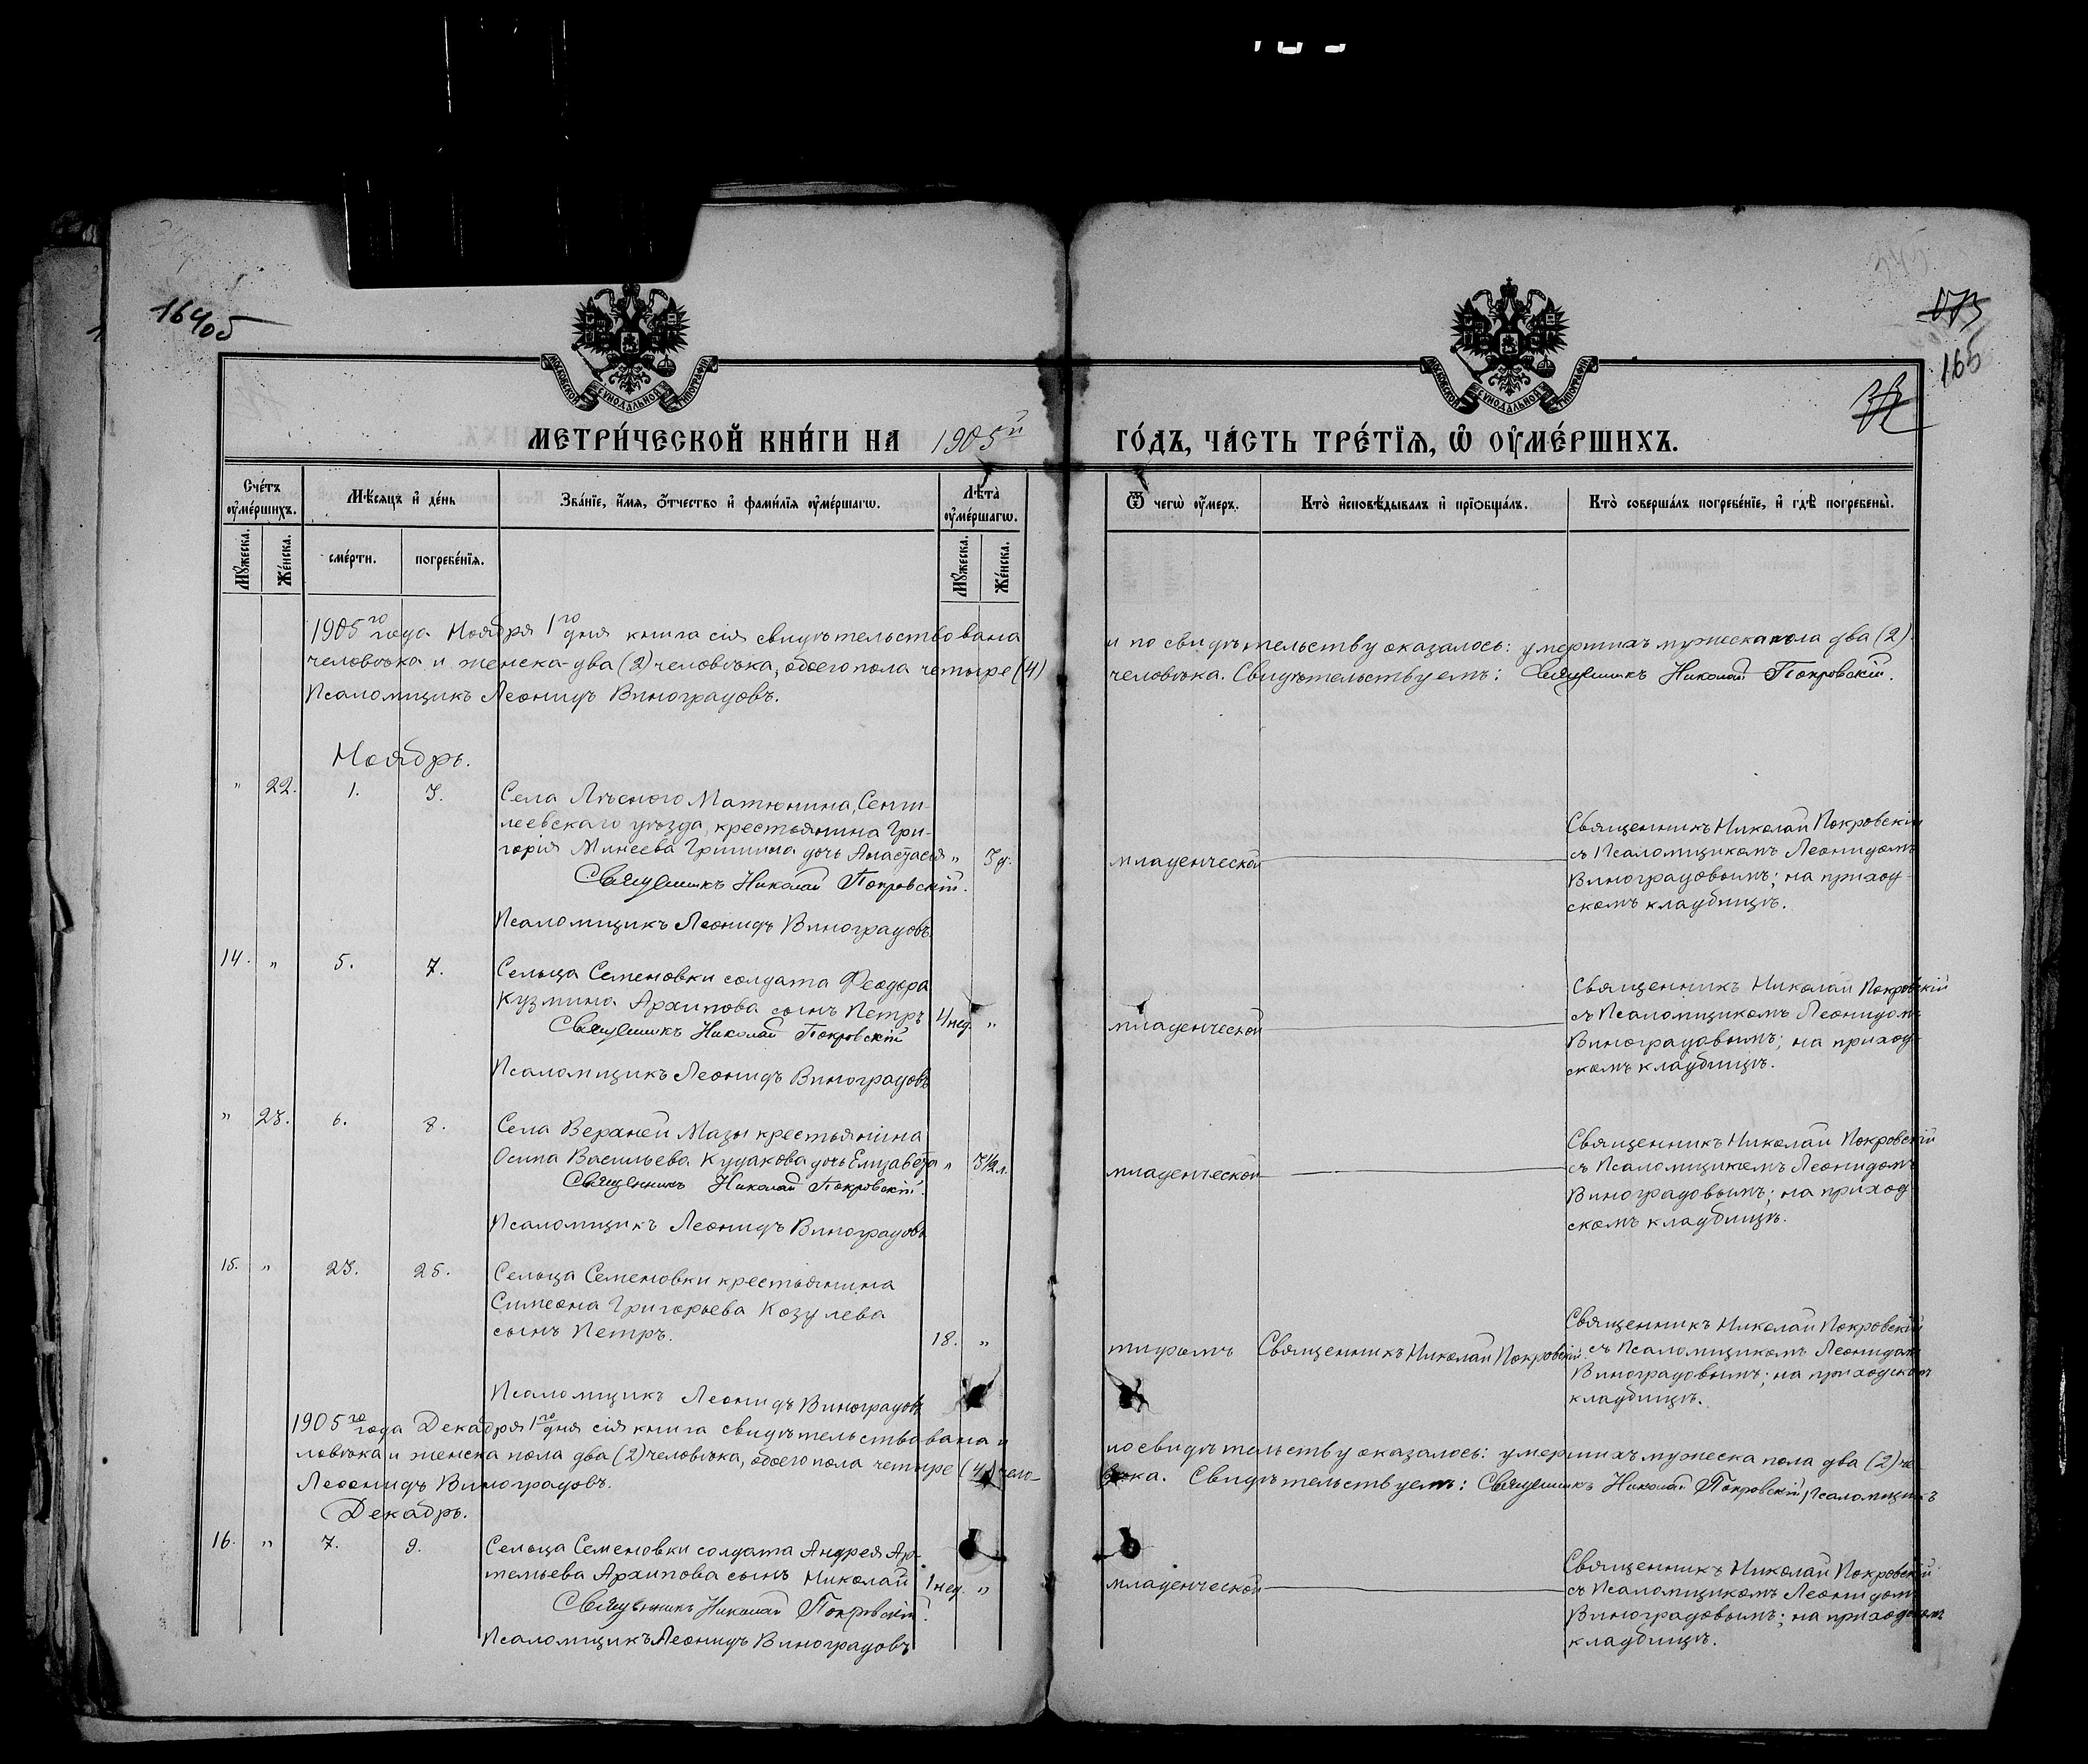 164об
165
МОСКОВСКОЙ СѴНОДАЛЬНОЙ ТИПОГРАФІИ
МОСКОВСКОЙ СѴНОДАЛЬНОЙ ТИПОГРАФІИ
МЕТРИ́ЧЕСКОЙ КНИ́ГИ НА 1905й ГО́ДЪ, ЧА́СТЬ ТРЕ́ТІѦ, Ѡ҆ ОУ҆МЕ́РШИХЪ.
Сче́тъ оу҆ме́ршихъ.
Мѣ́сяцъ и҆ де́нь
Зва́нїе, и҆́мя, ѻ҆́тчество и҆ фами́лїя оу҆ме́ршагѡ.
Лѣ́та оу҆ме́ршагѡ.
Ѿ чегѡ̀ оу҆́меръ.
Кто̀ и҆сповѣ́дывалъ и҆ прїѡбща́лъ.
Кто̀ соверша́лъ погребе́нїе, и҆ гдѣ̀ погребены̀.
Му́жеска.
Же́нска.
сме́рти.
погребе́нїя.
Му́жеска.
Же́нска.
1905го года Ноября 1го дня книга сія свидѣтельствована и по свидѣтельству оказалось: умершихъ мужеска пола два (2)
человѣка и женска - два (2) человѣка, обоего пола четыре (4) человѣка. Свидѣтельствуемъ: Священникъ Николай Покровскій.
Псаломщикъ Леонидъ Виноградовъ.
Ноябрь.
" 22. 1. 3. Села Лѣсного Матюнина, Сенги-
леевскаго уѣзда, крестьянина Гри-
горія Минеева Гришина дочь Анастасія " 3 д. младенческой
Священникъ Николай Покровскій.
Псаломщикъ Леонидъ Виноградовъ.
Священникъ Николай Покровскій
съ Псаломщикомъ Леонидомъ
Виноградовымъ; на приход-
скомъ кладбищѣ.
14. " 5. 7. Сельца Семеновки солдата Феодора
Кузмина Архипова сынъ Петръ 4 нед. " младенческой
Священникъ Николай Покровскій
Псаломщикъ Леонидъ Виноградовъ
Священникъ Николай Покровскій
съ Псаломщикомъ Леонидомъ
Виноградовымъ; на приход-
скомъ кладбищѣ.
" 23. 6. 8. Села Верхней Мазы крестьянина
Осипа Васильева Кудакова дочь Елизавета " 3½ л. младенческой
Священникъ Николай Покровскій.
Псаломщикъ Леонидъ Виноградовъ
Священникъ Николай Покровскій
съ Псаломщикомъ Леонидомъ
Виноградовымъ; на приход
скомъ кладбищѣ.
15. " 23. 25. Сельца Семеновки крестьянина
Симеона Григорьева Козулева
сынъ Петръ. 18. " тифомъ Священникъ Николай Покровскій.
Псаломщикъ Леонидъ Виноградовъ
Священникъ Николай Покровскій
съ Псаломщикомъ Леонидомъ
Виноградовымъ; на приходскомъ
кладбищѣ.
1905го года Декабря 1го дня сія книга свидѣтельствована и по свидѣтельству оказалось: умершихъ мужеска пола два (2) че
ловѣка и женска пола два (2) человѣка, обоего пола четыре (4) чело- вѣка. Свидѣтельствуемъ: Священникъ Николай Покровскій, Псаломщикъ
Леонидъ Виноградовъ.
Декабрь.
16. " 7. 9. Сельца Семеновки солдата Андрея Ар-
темьева Архипова сынъ Николай 1 нед. " младенческой
Священникъ Николай Покровскій.
Псаломщикъ Леонидъ Виноградовъ
Священникъ Николай Покровскій
съ Псаломщикомъ Леонидомъ
Виноградовымъ; на приходскомъ
кладбищѣ.